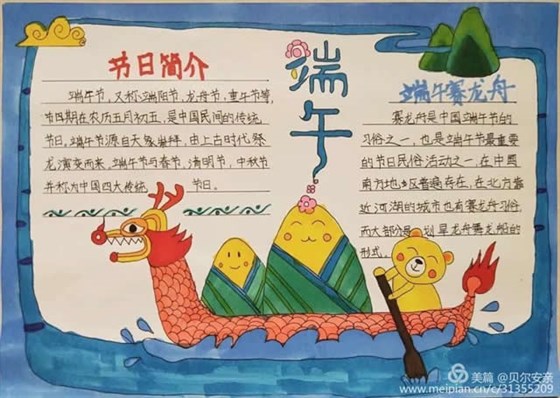 节日简介
端午节,又称端阳节,龙舟节,重午节等,
节日期在农历五月初五,是中国民间的传统
节日,端午节源自天象崇拜,由上古时代祭
龙演变而来。端午节与春节、清明节,中秋节
并称为中国四大传统 节日。
端午
端午赛龙舟
赛龙舟是中国端午节的
习俗之一,也是端午节最重要
的节日民俗活动之一,在中国
南方地区普遍存在,在北方靠
近河湖的城市也有赛龙舟习俗
而大部分是划旱龙舟赛龙船的
形式。
美篇 @贝尔安亲
www.meipian.cn/c/31355209